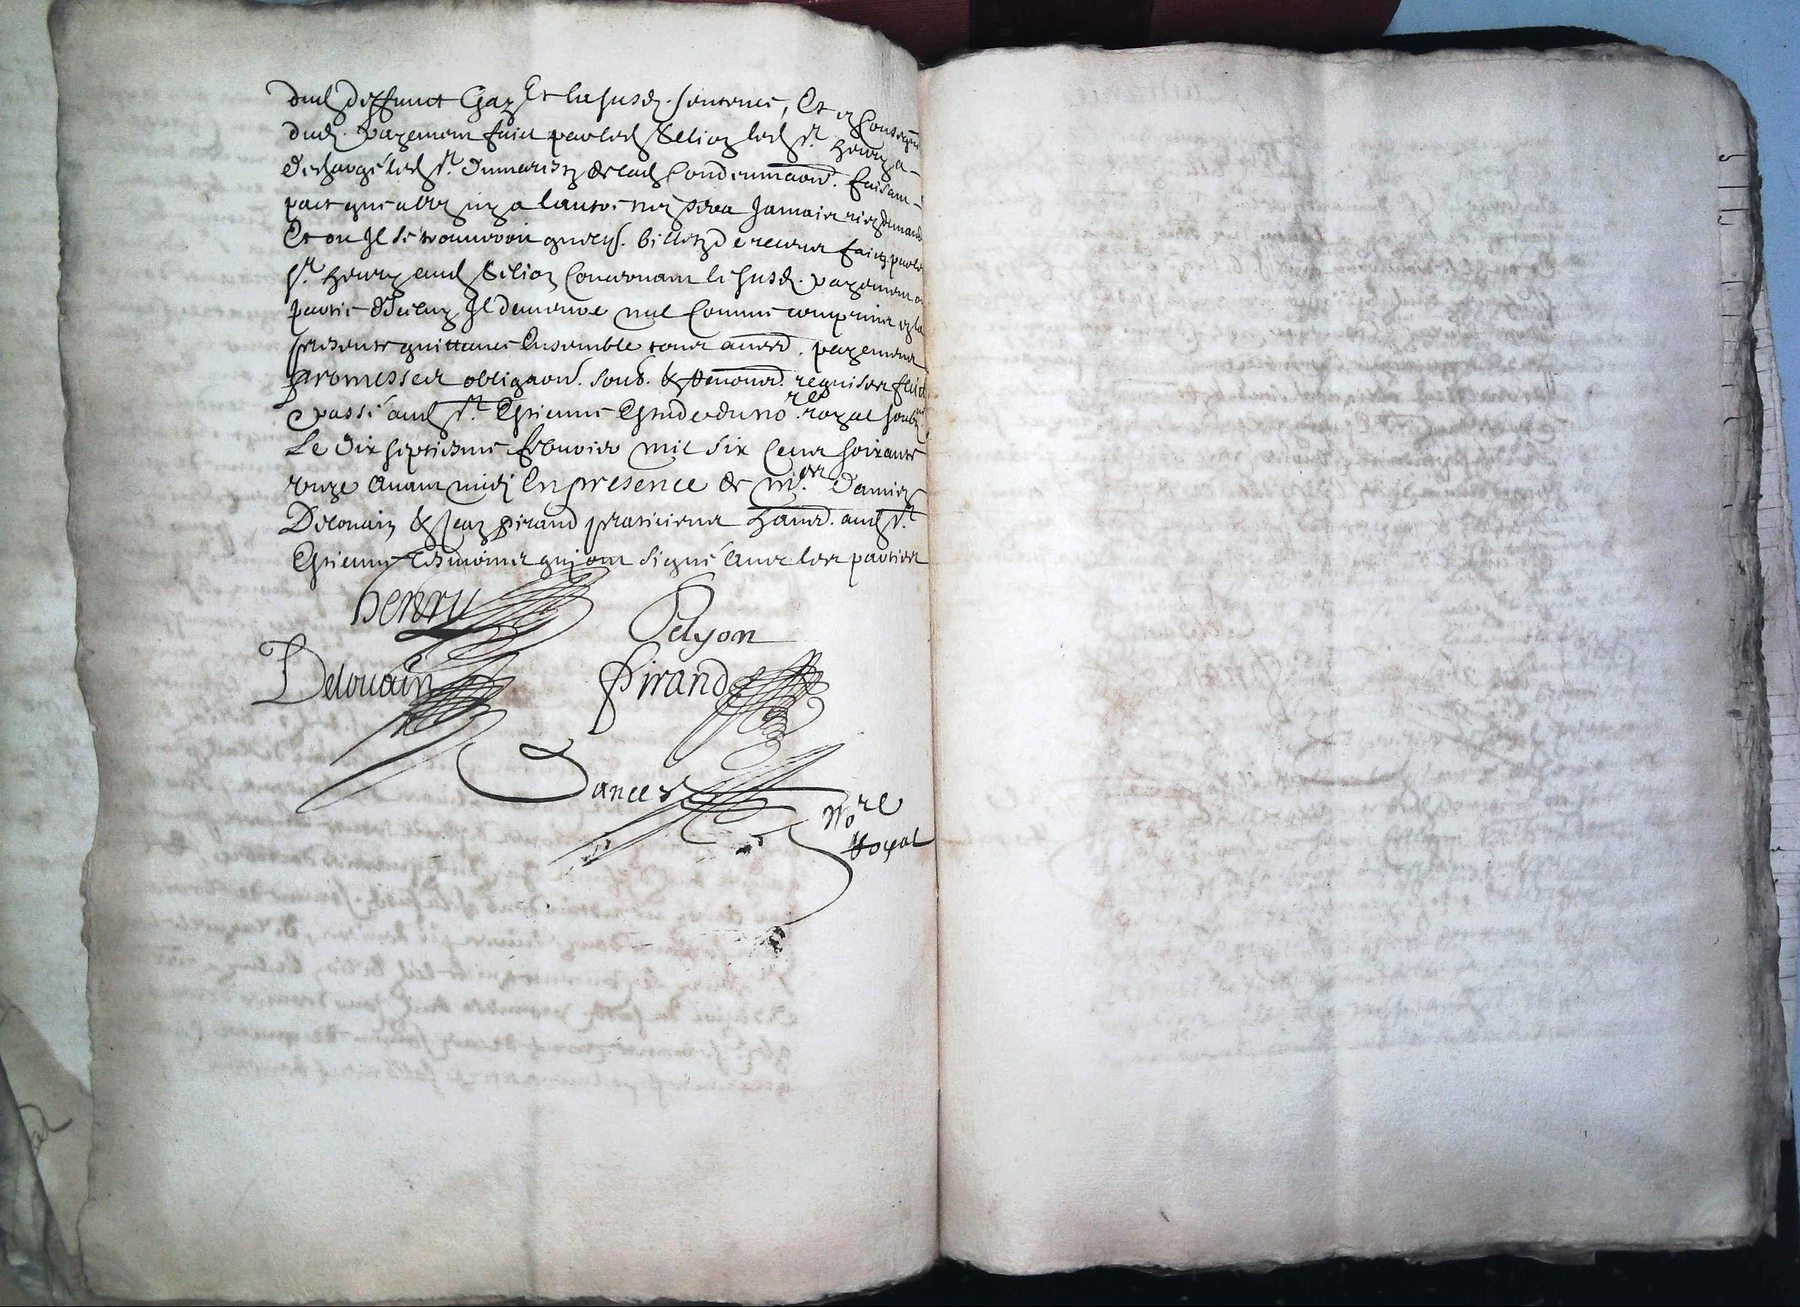 dud deffunct Gay Et la susd. sentence, Et en conseqn
dud. payement faict par led Pelion led sr. Henry a
deschargé led sr. Dumarist de lad Condemnaon. faisant
pact que a lun ny a lautre nen sera Jamais rien demandé
Et ou Il se trouveroit quelq. billets de receus faicts par le
sr. Henry aud Pelion Concernant le susd. payement ou
partie diceluy Il demeure nul Comme comprins en la
presente quittance Ensemble tous autres. payemens
promesses obligaons. soub. & renond. requises faict
& passé aud St. Estienne Estude du no.re royal soubz.
Le dix septiesme febvrier mil six Cens soixante
unze avant midj En presence de m.es Damien
Delouain & Jean Pirand praticiens habitd. aud St.
Estienne tesmoins qui ont signé avec les parties
henry
Pelyon
Delouain
Pirand
Dancer
No.re
Royal